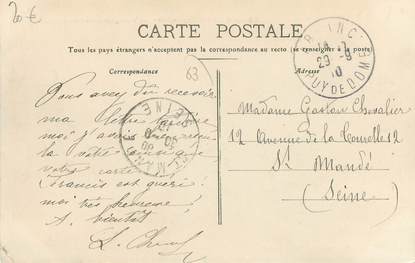 20 €
CARTE POSTALE
Tous les pays étrangers n'acceptent pas la correspondance au recto (se renseigner à la poste)
Correspondance
Adresse
63
Vous avez dû recevoir
ma lettre
moi j'avais
la vôtre
votre carte
Francis est guéri
moi très heureuse !
A bientôt
Madame Gaston Chevalier
12 Avenue de la Tourelle 12
St Mandé
(Seine)
29 - 9
10
PUY DE DOME
SEINE